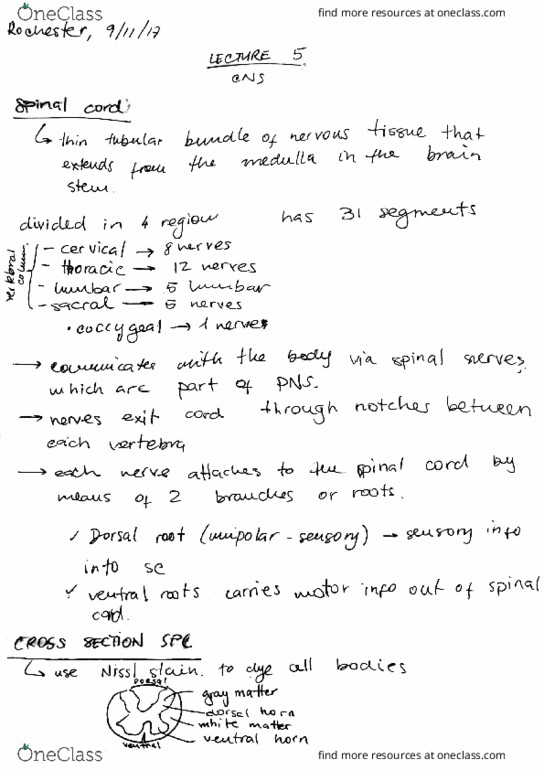 OneClass
find more resources at oneclass.com
Rochester, 9/11/17
LECTURE 5
CNS
Spinal cord:
↳ thin tubular bundle of nervous tissue that
extends from the medulla in the brain
stem.
divided in 4 region has 31 segments
vertebral column
- cervical → 8 nerves
- thoracic → 12 nerves
- lumbar → 5 lumbar
- sacral → 5 nerves
• coccygeal → 1 nerves
→ communicates with the body via spinal nerves
which are part of PNS.
→ nerves exit cord through notches between
each vertebra
→ each nerve attaches to the spinal cord by
means of 2 branches or roots.
✓ Dorsal root (unipolar - sensory) → sensory info
into sc
✓ ventral roots carries motor info out of spinal
cord.
CROSS SECTION SPC
↳ use Nissl stain. to dye all bodies
Dorsal
gray matter
dorsel horn
white matter
ventral horn
ventral
OneClass
find more resources at oneclass.com